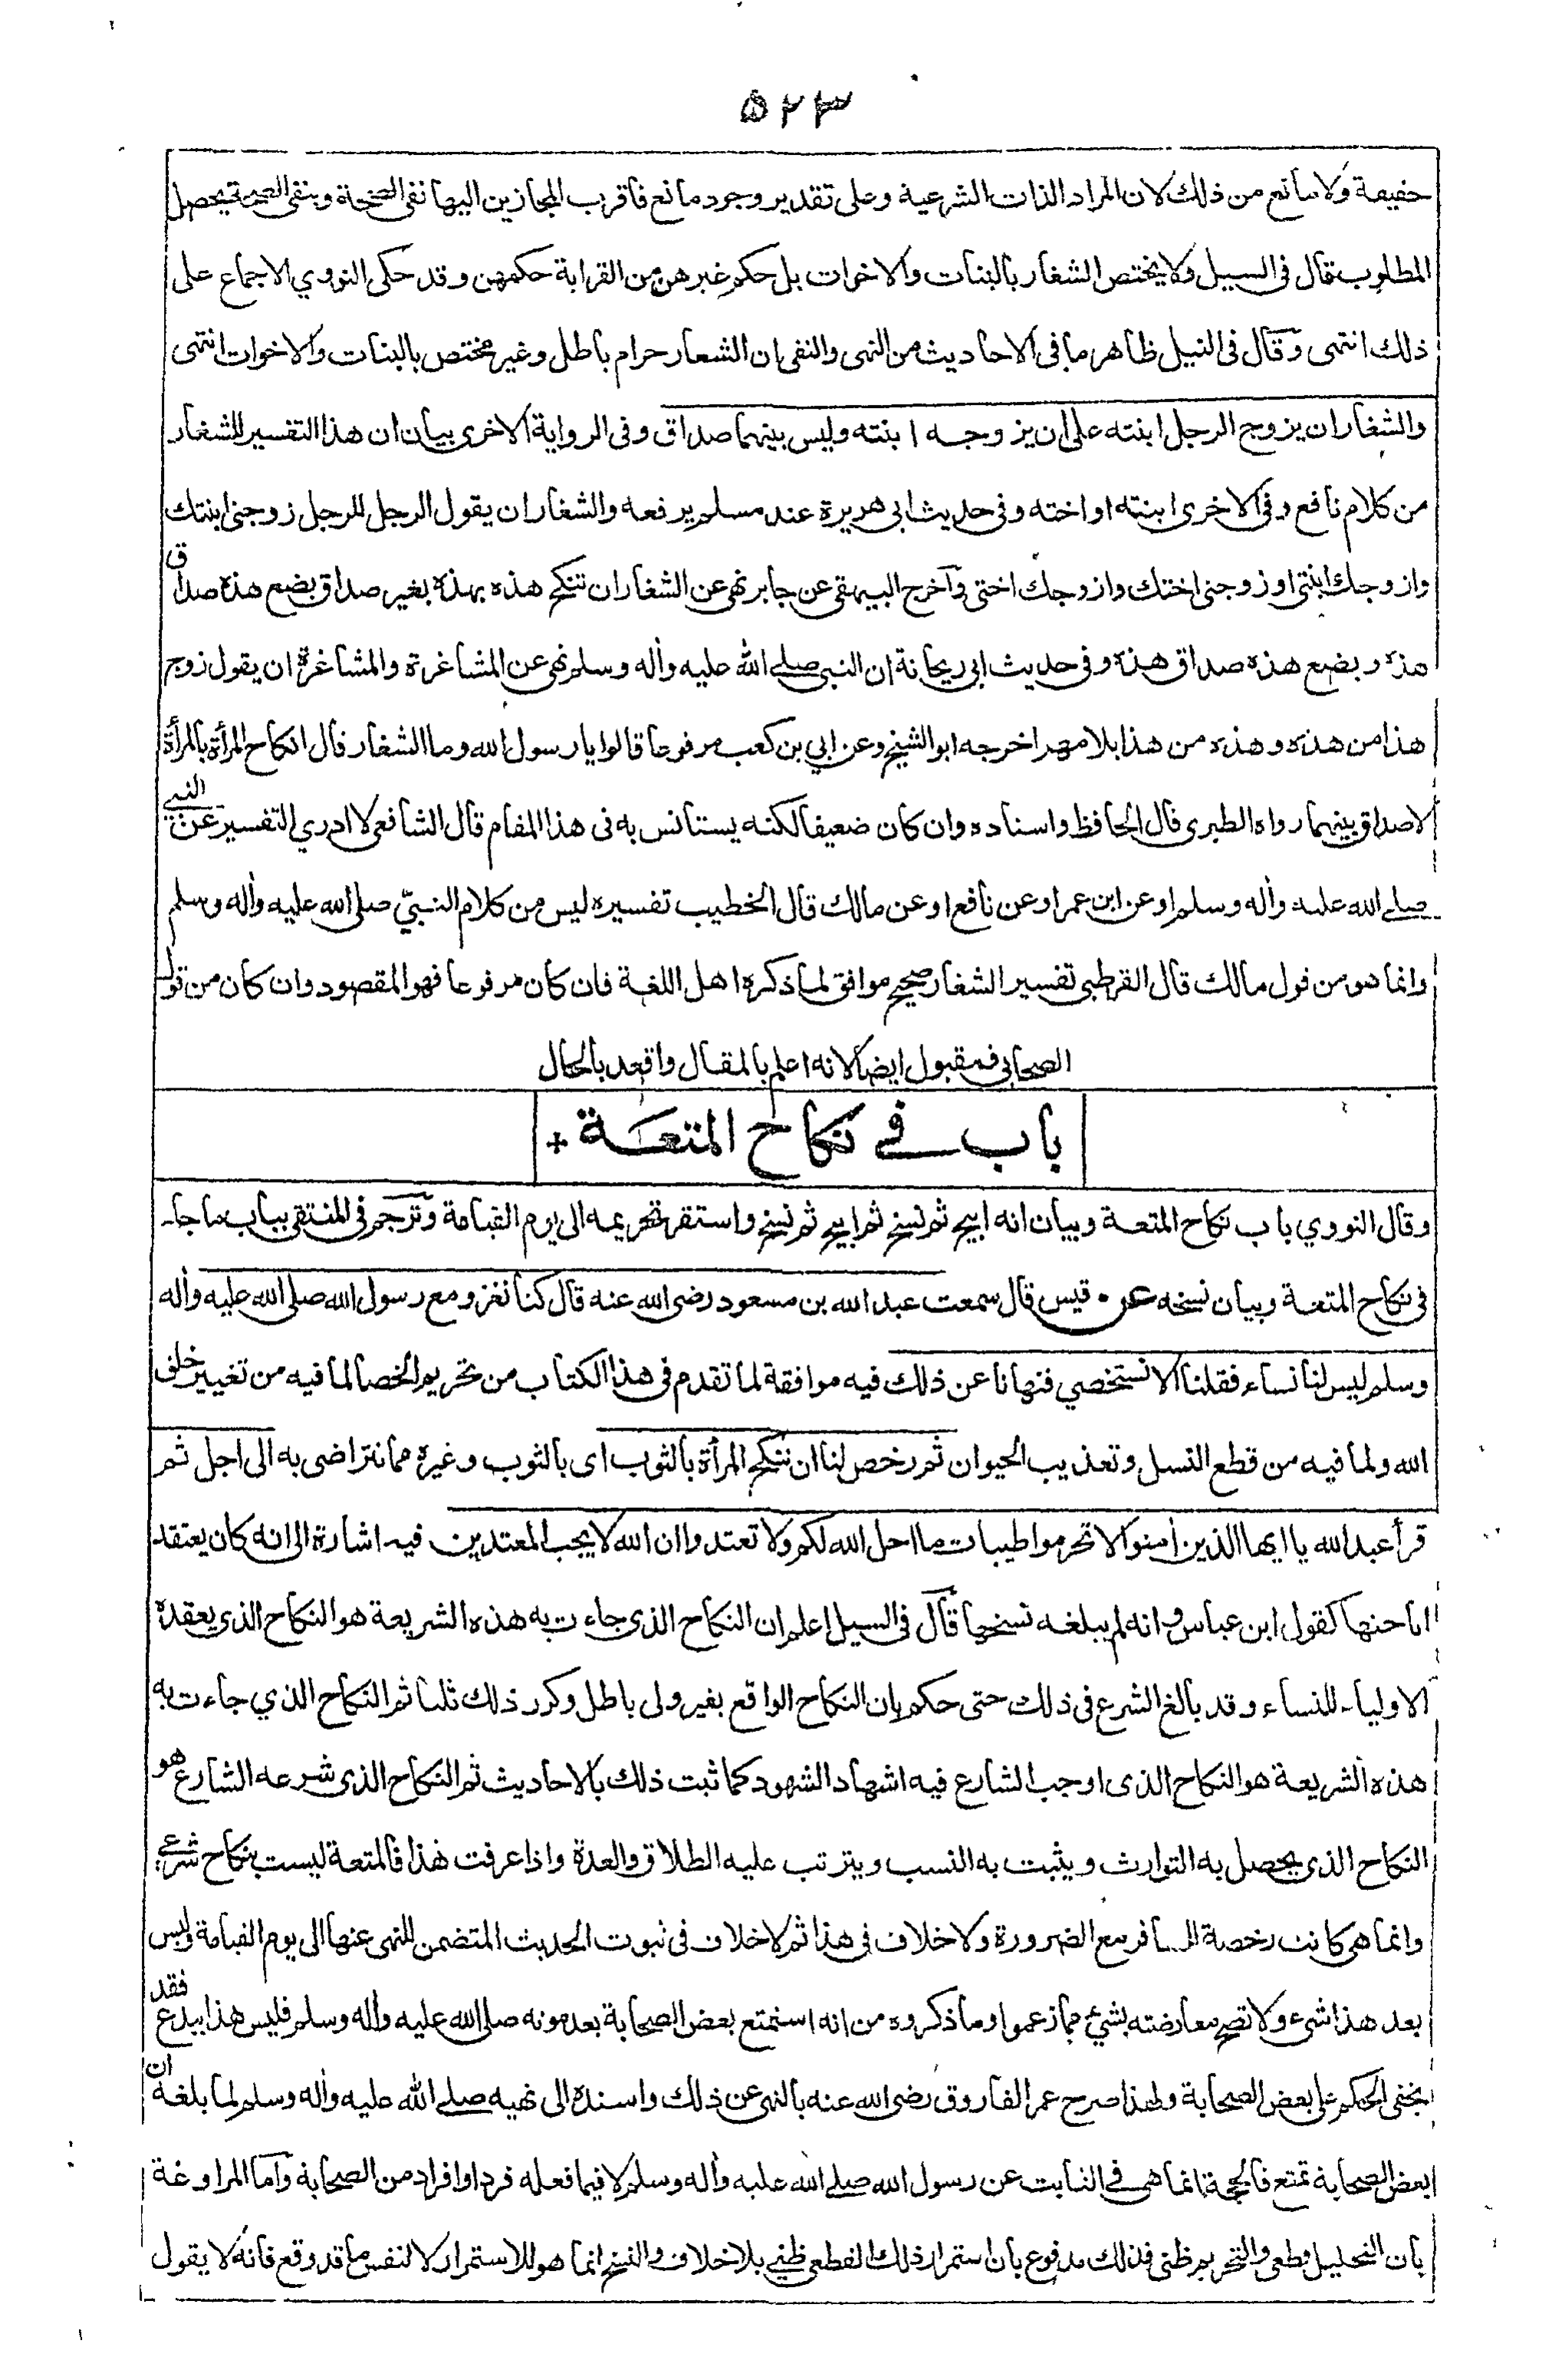 ۵۲۳
حقيقة ولا مانع من ذلك لان المراد الذات الشرعية وعلى تقدير وجود مانع فاقرب المجازين اليها نفى الصحة وبنفى الصحة يحصل
المطلوب قال فى السيل ولا يختص الشغار بالبنات والاخوات بل حكم غيرهن من القرابة حكمهن وقد حكى النووي الاجماع على
ذلك انتهى وقال فى النيل ظاهر ما فى الاحاديث من النهى والنفى ان الشعار حرام باطل وغير مختص بالبنات والاخوات انتهى
والشغار ان يزوج الرجل ابنته على ان يزوجه ابنته وليس بينهما صداق وفى الرواية الاخرى بيان ان هذا التفسير للشغار
من كلام نافع وفى الاخرى ابنته او اخته وفى حديث ابى هريرة عند مسلم يرفعه والشغار ان يقول الرجل للرجل زوجنى ابنتك
وازوجك ابنتى او زوجنى اختك وازوجك اختى وآخرج البيهقى عن جابر نهى عن الشغار ان تنكح هذه بهذه بغير صداق بضع هذه صداق
هذه وبضع هذه صداق هذه وفى حديث ابى ريحانة ان النبى صلے الله عليه وأله وسلم نهى عن المشاغرة والمشاغرة ان يقول زوج
هذا من هذه وهذه من هذا بلا مهر اخرجه ابو الشيخ وعن ابي بن كعب مرفوعا قالوا يا رسول الله وما الشغار قال انكاح المرأة بالمرأة
لا صداق بينهما رواه الطبرى قال الحافظ واسناده وان كان ضعيفا لكنه يستانس به فى هذا المقام قال الشافعى لا ادري التفسير عن النبے
صلے الله عليه وأله وسلم او عن ابن عمر او عن نافع او عن مالك قال الخطيب تفسيره ليس من كلام النبيّ صلى الله عليه وأله وسلم
وانما هو من قول مالك قال القرطبى تفسير الشغار صحيح موافق لما ذكره اهل اللغة فان كان مرفوعا فهو المقصود وان كان من قول
الصحابى فمقبول ايضا لانه اعلم بالمقال واقعد بالحال
باب فے نكاح المتعة +
وقال النووي باب نكاح المتعة وبيان انه ابيح ثم نسخ ثم ابيح ثم نسخ واستقر تحريمه الى يوم القيامة وترجم فى المنتقى بباب ما جاء
فى نكاح المتعة وبيان نسخه عن قيس قال سمعت عبد الله بن مسعود رضى الله عنه قال كنا نغزو مع رسول الله صلى الله عليه وأله
وسلم ليس لنا نساء فقلنا الا نستخصي فنهانا عن ذلك فيه موافقة لما تقدم فى هذا الكتاب من تحريم الخصا لما فيه من تغيير خلق
الله ولما فيه من قطع النسل وتعذيب الحيوان ثم رخص لنا ان ننكح المرأة بالثوب اى بالثوب وغيره مما نتراضى به الى اجل ثم
قرأ عبد الله يا ايها الذين أمنوا لا تحرموا طيبات ما احل الله لكم ولا تعتدوا ان الله لا يحب المعتدين فيه اشارة الى انه كان يعتقد
اباحتها كقول ابن عباس وانه لم يبلغه نسخها قآل فى السيل اعلم ان النكاح الذى جاءت به هذه الشريعة هو النكاح الذى يعقده
الاولياء للنساء وقد بالغ الشرع فى ذلك حتى حكم بان النكاح الواقع بغير ولى باطل وكرر ذلك ثلثا ثم النكاح الذي جاءت به
هذه الشريعة هو النكاح الذى اوجب الشارع فيه اشهاد الشهود كما ثبت ذلك بالاحاديث ثم النكاح الذى شرعه الشارع هو
النكاح الذى يحصل به التوارث ويثبت به النسب ويترتب عليه الطلاق والعدة واذا عرفت هذا فالمتعة ليست بنكاح شرعے
وانما هى كانت رخصة للمسافر مع الضرورة ولا خلاف فى هذا ثم لا خلاف فى ثبوت الحديث المتضمن للنهى عنها الى يوم القيامة وليس
بعد هذا شىء ولا تصح معارضته بشيئ مما زعموا وما ذكروه من انه استمتع بعض الصحابة بعد موته صلى الله عليه وأله وسلم فليس هذا ببدع فقد
يخفى الحكم على بعض الصحابة ولهذا صرح عمر الفاروق رضى الله عنه بالنهى عن ذلك واسنده الى نهيه صلے الله عليه وأله وسلم لما بلغه ان
بعض الصحابة تمتع فالحجة انما هى فے الثابت عن رسول الله صلے الله عليه وأله وسلم لا فيما فعله فرد او افراد من الصحابة وآما المراوغة
بان التحليل قطعى والتحريم ظنى فذلك مدفوع بان استمرار ذلك القطعى ظنے بلا خلاف والنسخ انما هو للاستمرار لا لنفس ما قد وقع فانه لا يقول